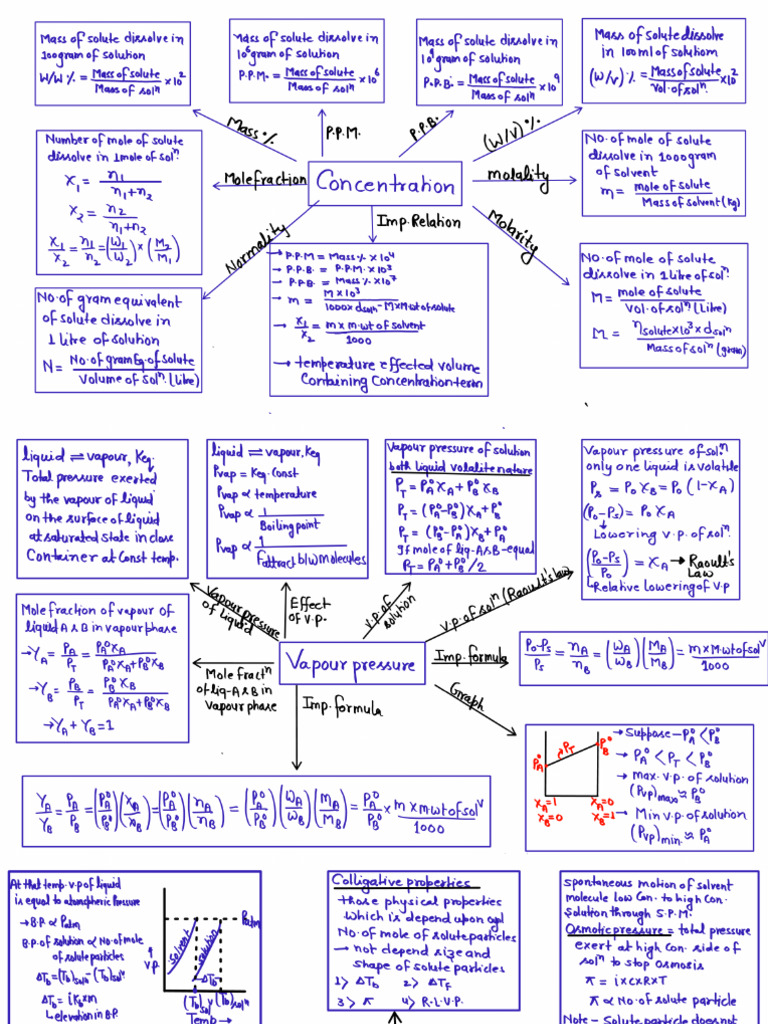 Mass of solute dissolve in
100gram of solution
W/W % = Mass of solute / Mass of solⁿ ×10²
Mass of solute dissolve in
10⁶gram of solution
P.P.M. = Mass of solute / Mass of solⁿ ×10⁶
Mass of solute dissolve in
10⁹gram of solution
P.P.B. = Mass of solute / Mass of solⁿ ×10⁹
Mass of solute dissolve
in 100ml of solution
(W/V)% = Mass of solute / Vol. of solⁿ ×10²
Mass %
P.P.M.
P.P.B.
(W/V) %
Number of mole of solute
dissolve in 1mole of solⁿ.
X₁ = n₁ / n₁+n₂
X₂ = n₂ / n₁+n₂
X₁/X₂ = n₁/n₂ = (W₁/W₂) × (M₂/M₁)
Molefraction
Concentration
molality
NO. of mole of solute
dissolve in 1000gram
of solvent
m = mole of solute / Mass of solvent (Kg)
Normality
Imp. Relation
Molarity
→ P.P.M = Mass % ×10⁴
→ P.P.B. = P.P.M. ×10³
→ P.P.B = Mass % ×10⁷
→ m = M×10³ / 1000×dsolⁿ - M×M.wt of solute
→ X₁/X₂ = m×m.wt of solvent / 1000
→ temperature effected volume
Containing Concentration term
NO. of mole of solute
dissolve in 1 Litre of solⁿ.
M = mole of solute / Vol. of solⁿ (Litre)
M = ηsolute×10³×dsolⁿ / Mass of solⁿ (gram)
NO. of gram equivalent
of solute dissolve in
1 Litre of solution
N = No. of gram Eq. of solute / Volume of solⁿ. (Litre)
liquid ⇌ vapour, Keq.
Total pressure exerted
by the vapour of liquid
on the surface of liquid
at saturated state in close
Container at Const temp.
liquid ⇌ vapour, Keq
Pvap = Keq. Const
Pvap ∝ temperature
Pvap ∝ 1 / Boiling point
Pvap ∝ 1 / Fattract b/w molecules
Vapour pressure of solution
both liquid volalite nature
P_T = P_A° X_A + P_B° X_B
P_T = (P_A°-P_B°)X_A + P_B°
P_T = (P_B°-P_A°)X_B + P_A°
If mole of liq-A & B-equal
P_T = P_A°+P_B°/2
Vapour pressure of solⁿ.
only one liquid is volatile
Ps = P₀ X_B = P₀ (1-X_A)
(P₀-Ps) = P₀ X_A
↳ Lowering v.p. of solⁿ.
(P₀-Ps / P₀) = X_A → Raoult's
Law
↳ Relative lowering of V.P
Vapour pressure
of liquid
Effect
of V.P.
V.P. of
solution
V.P. of solⁿ (Raoult's law)
Mole fraction of vapour of
liquid A & B in vapour phase
→ Y_A = P_A/P_T = P_A° X_A / P_A° X_A + P_B° X_B
→ Y_B = P_B/P_T = P_B° X_B / P_A° X_A + P_B° X_B
→ Y_A + Y_B = 1
Mole fractⁿ
of liq-A & B in
Vapour phase
Vapour pressure
Imp. formula
P₀-Ps / Ps = n_A/n_B = (W_A/W_B) (M_B/M_A) = m×M.wt of solᵛ / 1000
Imp. formula
Graph
P_A°
P_T
P_B°
X_A=1
X_B=0
X_A=0
X_B=1
→ Suppose - P_A° < P_B°
→ P_A° < P_T < P_B°
→ max. v.p. of solution
(Pvp)max ≈ P_B°
→ Min v.p. of solution
(Pvp)min. ≈ P_A°
Y_A/Y_B = P_A/P_B = (P_A°/P_B°) (X_A/X_B) = (P_A°/P_B°) (n_A/n_B) = (P_A°/P_B°) (W_A/W_B) (M_B/M_A) = P_A°/P_B° × m×m.wt of solᵛ / 1000
At that temp. v.p of liquid
is equal to atmospheric Pressure
→ B.P ∝ Patm
B.P. of solution ∝ No. of mole
of solute particles
ΔT_b = (T_b)solⁿ - (T_b)solᵛ
ΔT_b = i K_b × m
↳ elevation in B.P.
V.P.
solvent
solution
Patm
ΔT_b
(T_b)solᵛ (T_b)solⁿ
Temp →
Colligative properties
those physical properties
which is depend upon only
No. of mole of solute particles
→ not depend size and
shape of solute particles
1> ΔT_b 2> ΔT_f
3> π 4> R.L.V.P.
spontaneous motion of solvent
molecule low Con. to high Con.
Solution through S.P.M.
Osmotic pressure = total pressure
exert at high Con. side of
solⁿ to stop Osmosis
π = i×C×R×T
π ∝ No. of solute particle
Note - Solute particle does not